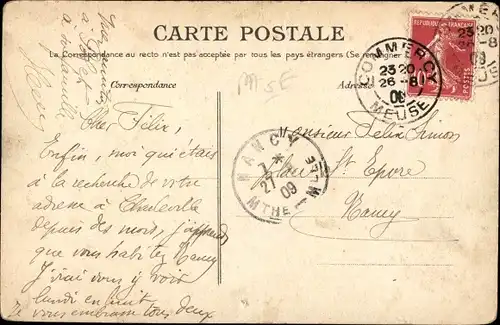 CARTE POSTALE
La Correspondance au recto n'est pas acceptée par tous les pays étrangers (Se renseigner
Correspondance
Adresse
RÉPUBLIQUE FRANÇAISE
POSTES
COMMERCY
23 20
26 - 8
09
MEUSE
23 20
- 8
09
NANCY
7 *
27
09
MTHE MLLE
Cher Félix,
Enfin, moi qui étais
à la recherche de votre
adresse à Charleville
depuis des mois, j'apprends
que vous habitez Nancy
J'irai vous y voir
lundi en huit.
Je vous embrasse tous deux
Monsieur Felix Simon
Place St Epvre
Nancy